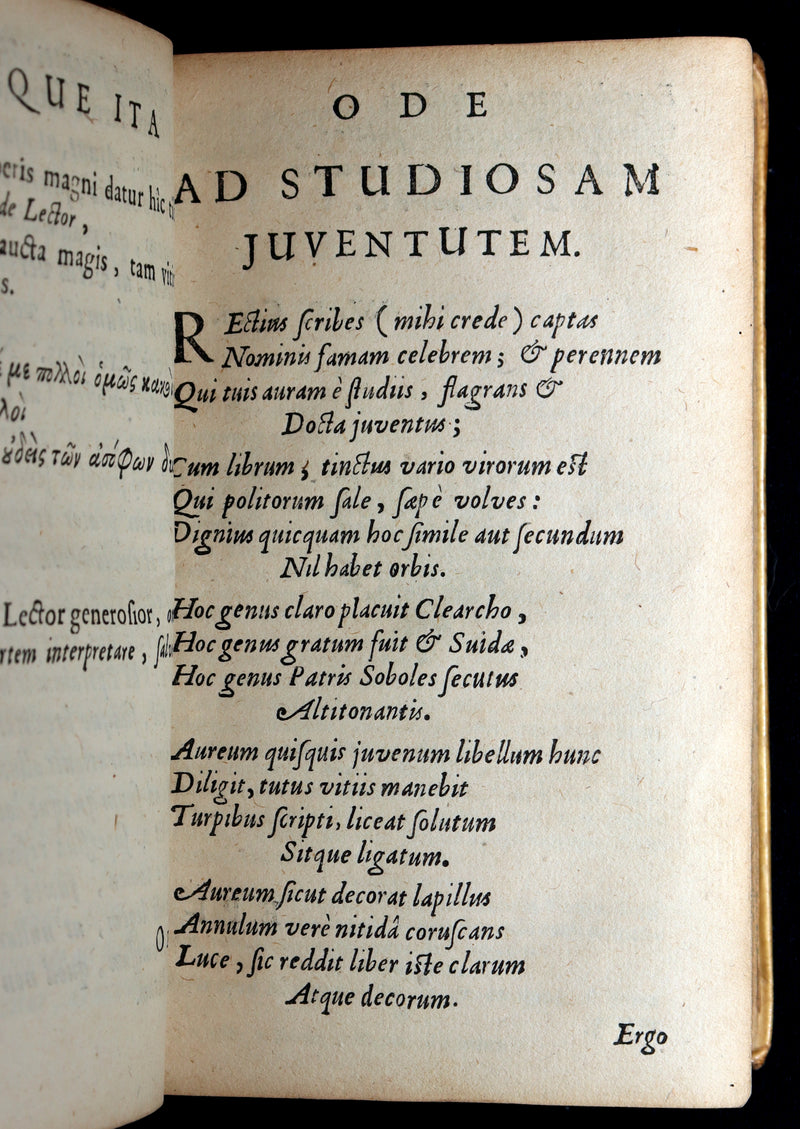 QUE ITA
magni datur hic
de Lector,
aucta magis, tam
s.
με πολλοι ομως
λοι
των
Lector generosior,
interpretare,
ODE
AD STUDIOSAM
JUVENTUTEM.
REctius scribes (mihi crede) captas
Nominis famam celebrem; & perennem
Qui tuis auram è studiis, flagrans &
Docta juventus;
Cum librum; tinctus vario virorum est
Qui politorum sale, sæpè volves:
Dignius quicquam hoc simile aut secundum
Nil habet orbis.
Hoc genus claro placuit Clearcho,
Hoc genus gratum fuit & Suidæ,
Hoc genus Patris Soboles secutus
Altitonantis.
Aureum quisquis juvenum libellum hunc
Diligit, tutus vitiis manebit
Turpibus scripti, liceat solutum
Sitque ligatum.
Aureum sicut decorat lapillus
Annulum verè nitidâ coruscans
Luce, sic reddit liber iste clarum
Atque decorum.
Ergo